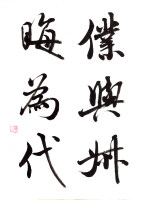 僕與艸
晦為代